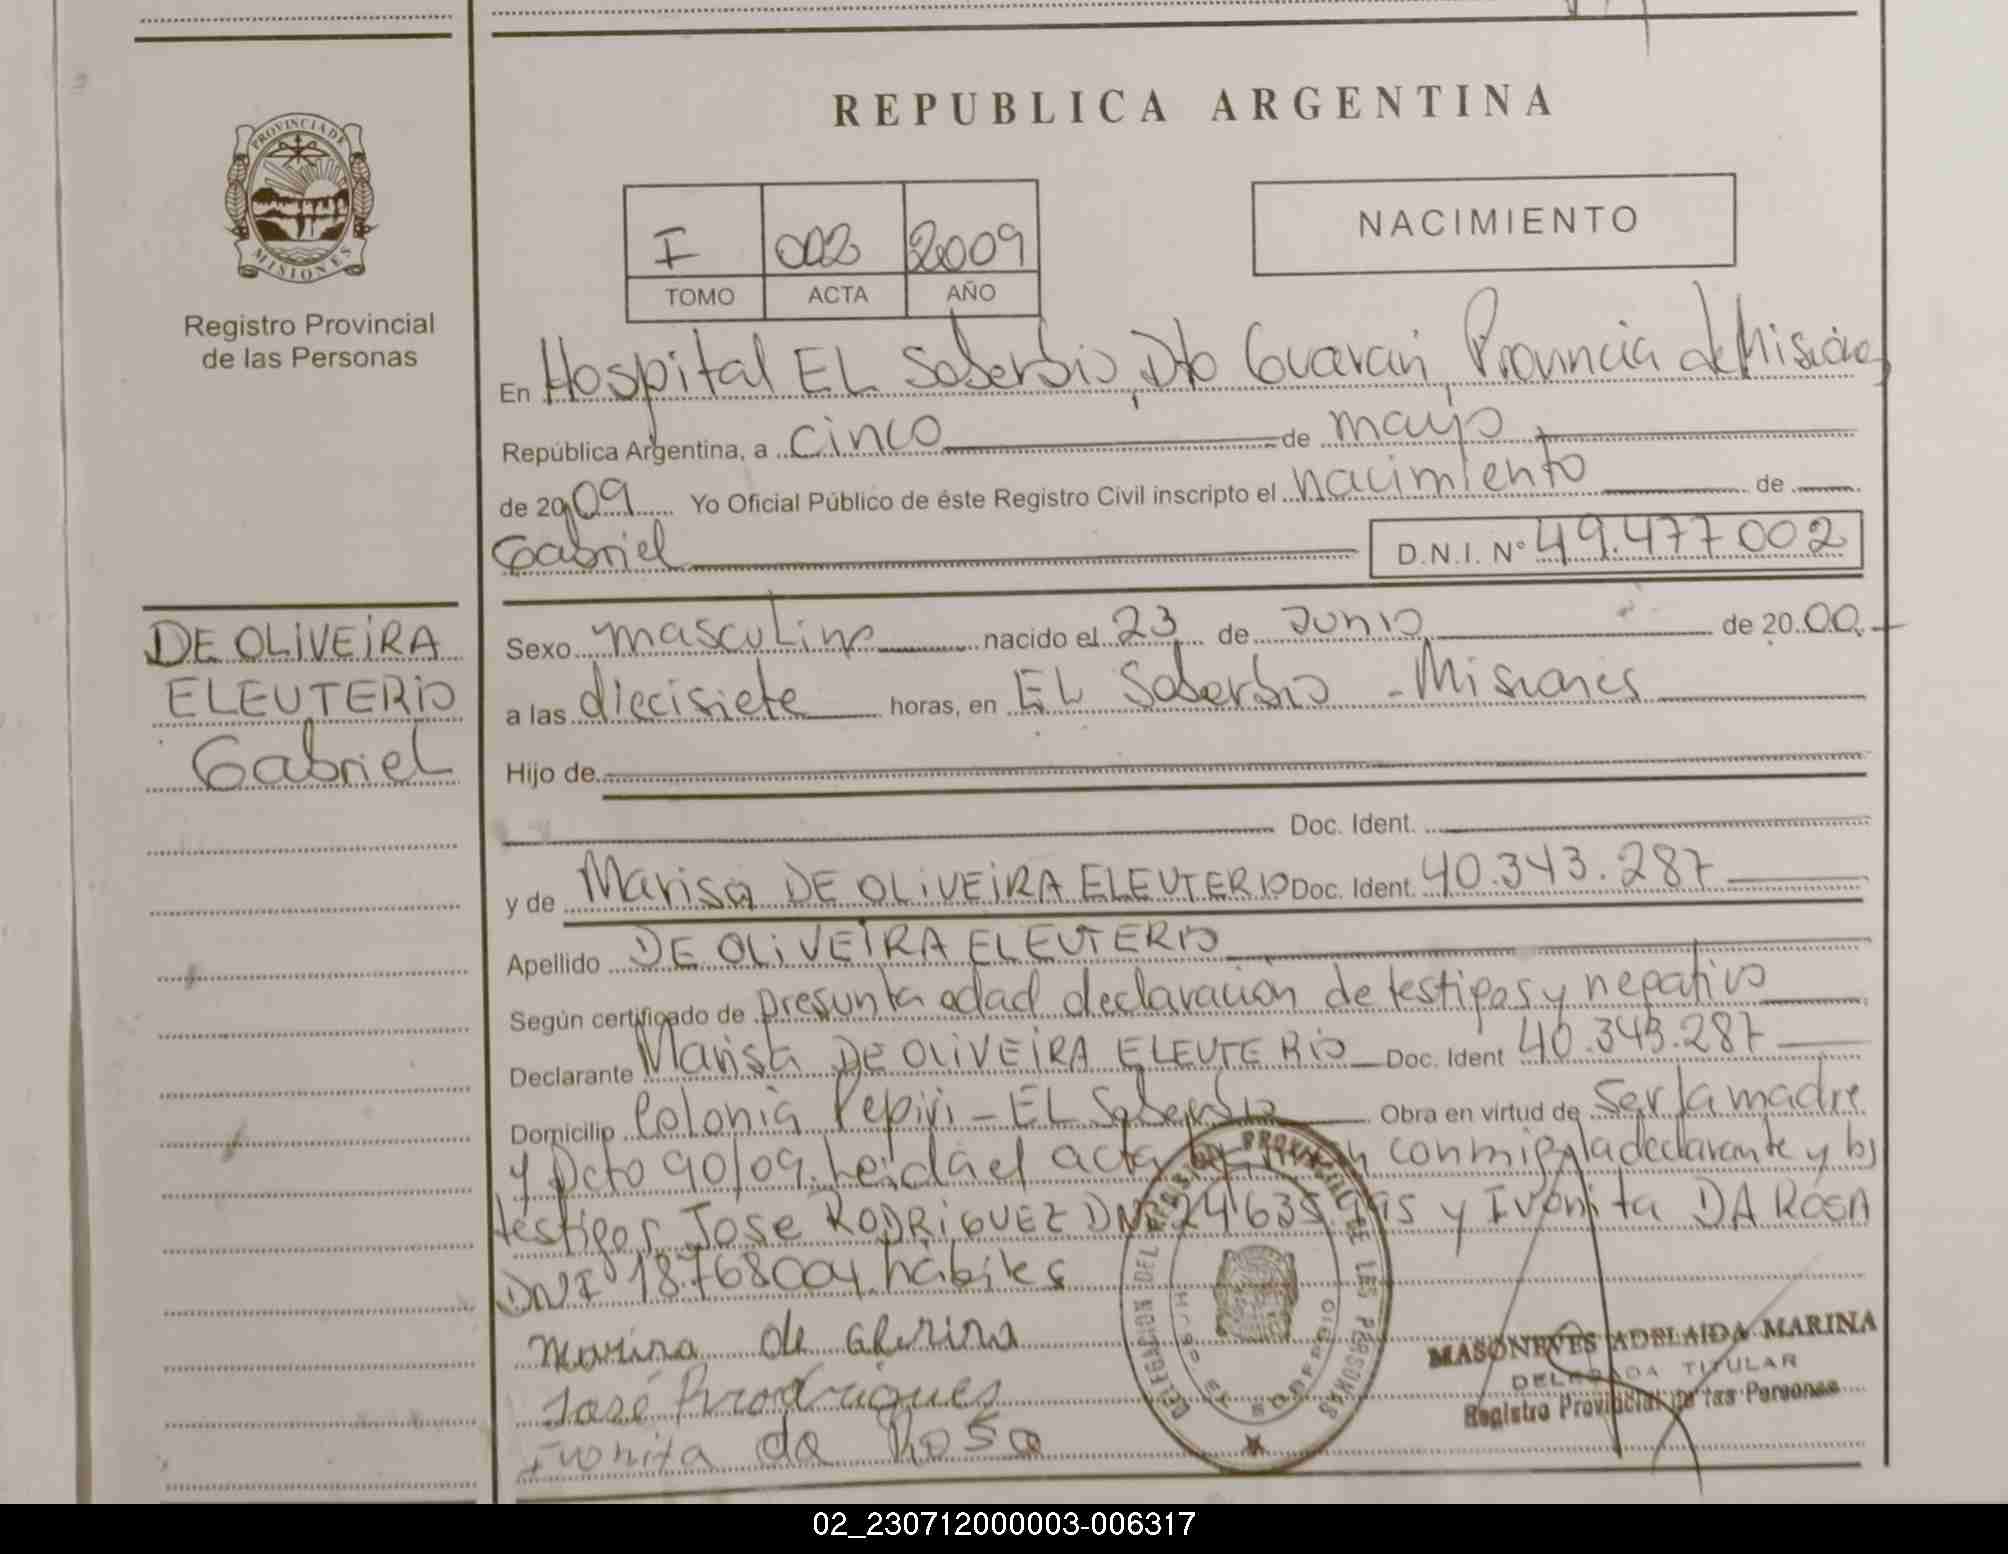 REPUBLICA ARGENTINA
PROVINCIA DE
MISIONES
Registro Provincial
de las Personas
I 002 2009
TOMO ACTA AÑO
NACIMIENTO
En Hospital EL Soberbio, Dto Guaraní, Provincia de Misiones
República Argentina, a cinco de mayo
de 2009 Yo Oficial Público de éste Registro Civil inscripto el nacimiento de
Gabriel D.N.I. Nº 49.477.002
DE OLIVEIRA
ELEUTERIO
Gabriel
Sexo masculino nacido el 23 de Junio de 2000.
a las diecisiete horas, en EL Soberbio - Misiones
Hijo de
Doc. Ident.
y de Marisa DE OLIVEIRA ELEUTERIO Doc. Ident. 40.343.287
Apellido DE OLIVEIRA ELEUTERIO
Según certificado de presunta edad declaración de testigos y negativo
Declarante Marisa DE OLIVEIRA ELEUTERIO Doc. Ident 40.343.287
Domicilio Colonia Pepiri - EL Soberbio Obra en virtud de Ser la madre
y Dcto 90/09. Leida el acta conmigo la declarante y los
testigos Jose RODRIGUEZ DNI 24.635. y Ivonita DA ROSA
DNI 18.768004 habiles
DELEGACION DEL REGISTRO PROVINCIAL DE LAS PERSONAS
EL SOBERBIO
Marina de
José Rrodrigues
Ivonita da Rosa
MASONEVES ADELAIDA MARINA
DELEGADA TITULAR
Registro Provincial de las Personas
02_230712000003-006317